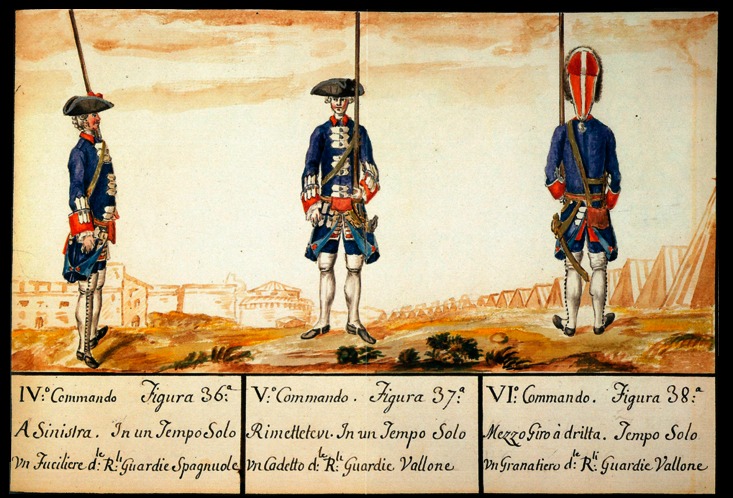 IV:º Commando Figura 36:ª
A Sinistra. In un Tempo Solo
Vn Fuciliere d:le R:li Guardie Spagnuole
V:º Commando. Figura 37:ª
Rimettetevi. In un Tempo Solo
Vn Cadetto d:le R:li Guardie Vallone
VI:º Commando. Figura 38:ª
Mezzo Giro à dritta. Tempo Solo
Vn Granatiero d:le R:li Guardie Vallone